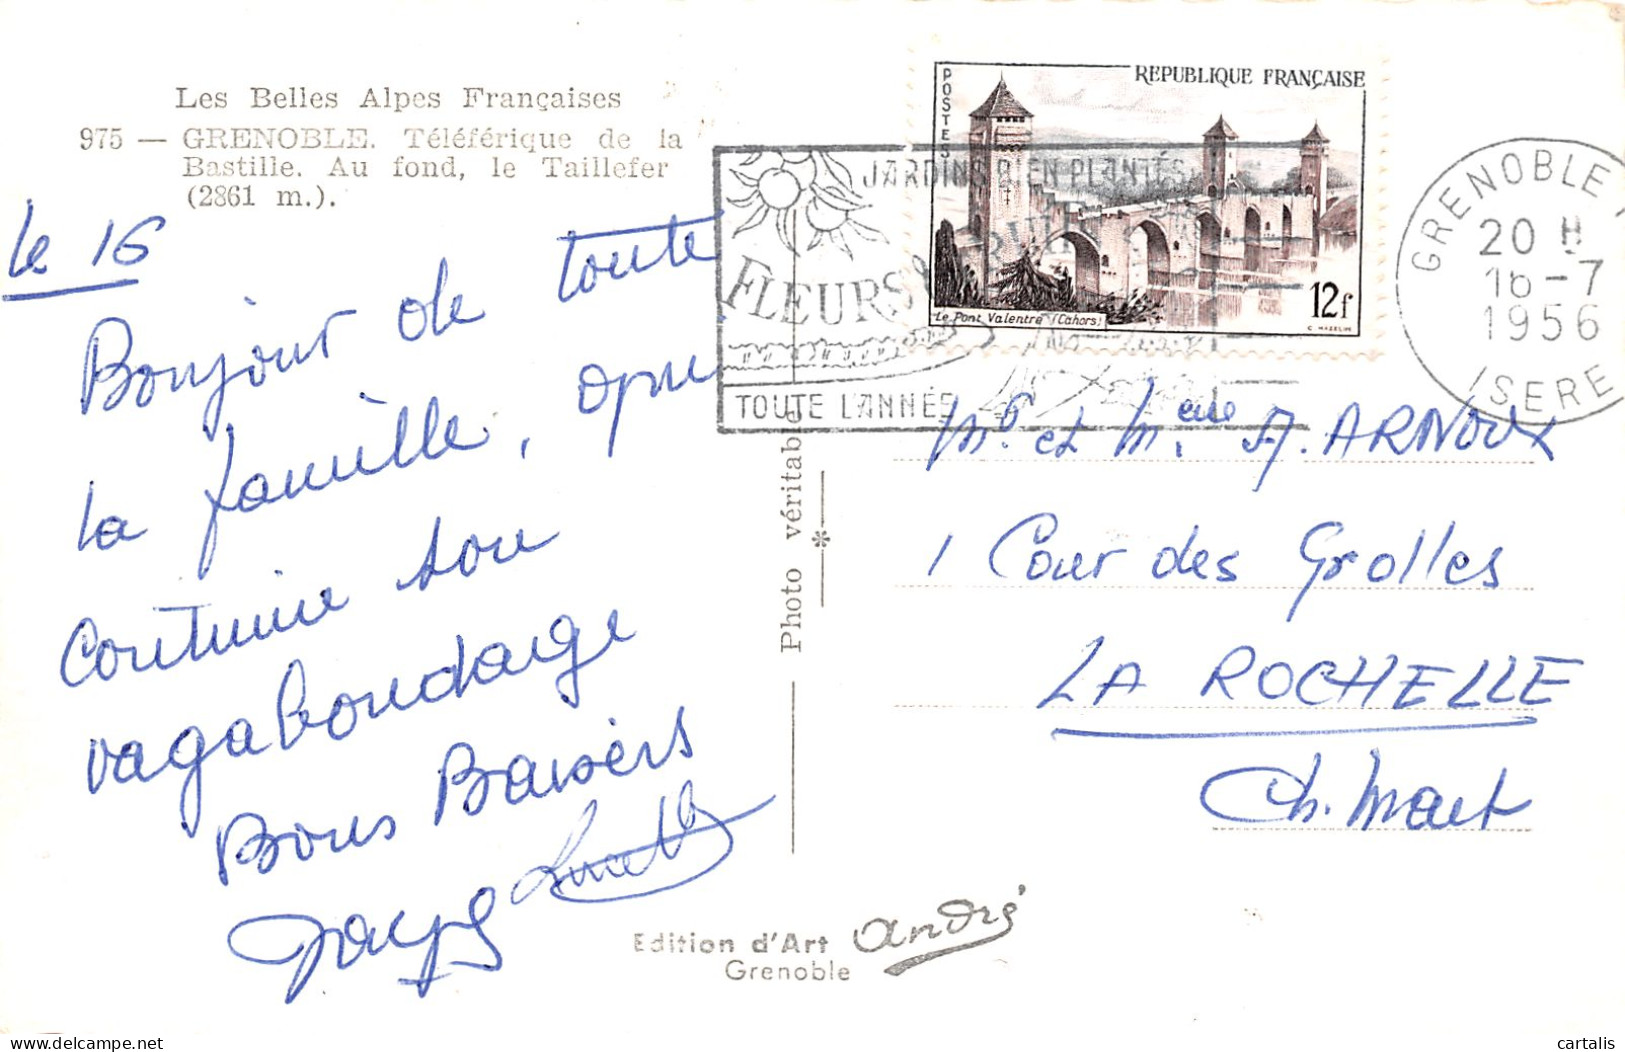 Les Belles Alpes Françaises
975 — GRENOBLE. Téléférique de la
Bastille. Au fond, le Taillefer
(2861 m.).
le 16
Bonjour de toute
la famille, qui
continue son
vagabondage
Bons Baisers
Lucette
POSTES
REPUBLIQUE FRANÇAISE
Le Pont Valentré (Cahors)
12f
C. MAZELIN
JARDINS BIEN PLANTÉS
FLEURS & FRUITS
TOUTE L'ANNÉE
GRENOBLE
20 H
16-7
1956
ISERE
Mr et Mme A. ARNOUX
1 Cour des Grolles
LA ROCHELLE
Ch. Mart
Photo véritable
*
Edition d'Art André
Grenoble
cartalis